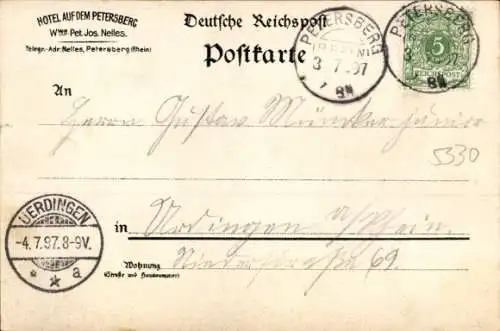 HOTEL AUF DEM PETERSBERG
Wwe Pet. Jos. Nelles.
Telegr.-Adr: Nelles, Petersberg (Rhein)
Deutsche Reichspost
Postkarte
PETERSBERG
(RHEIN)
3 7 97
8N
PETERSBERG
3 97
8N
5
REICHSPOST
An
Herrn Gustav Müncker junior
5330
in Urdingen a/Rhein.
Wohnung
(Straße und Hausnummer)
Niederstraße 69.
UERDINGEN
-4.7.97.8-9V.
* * a